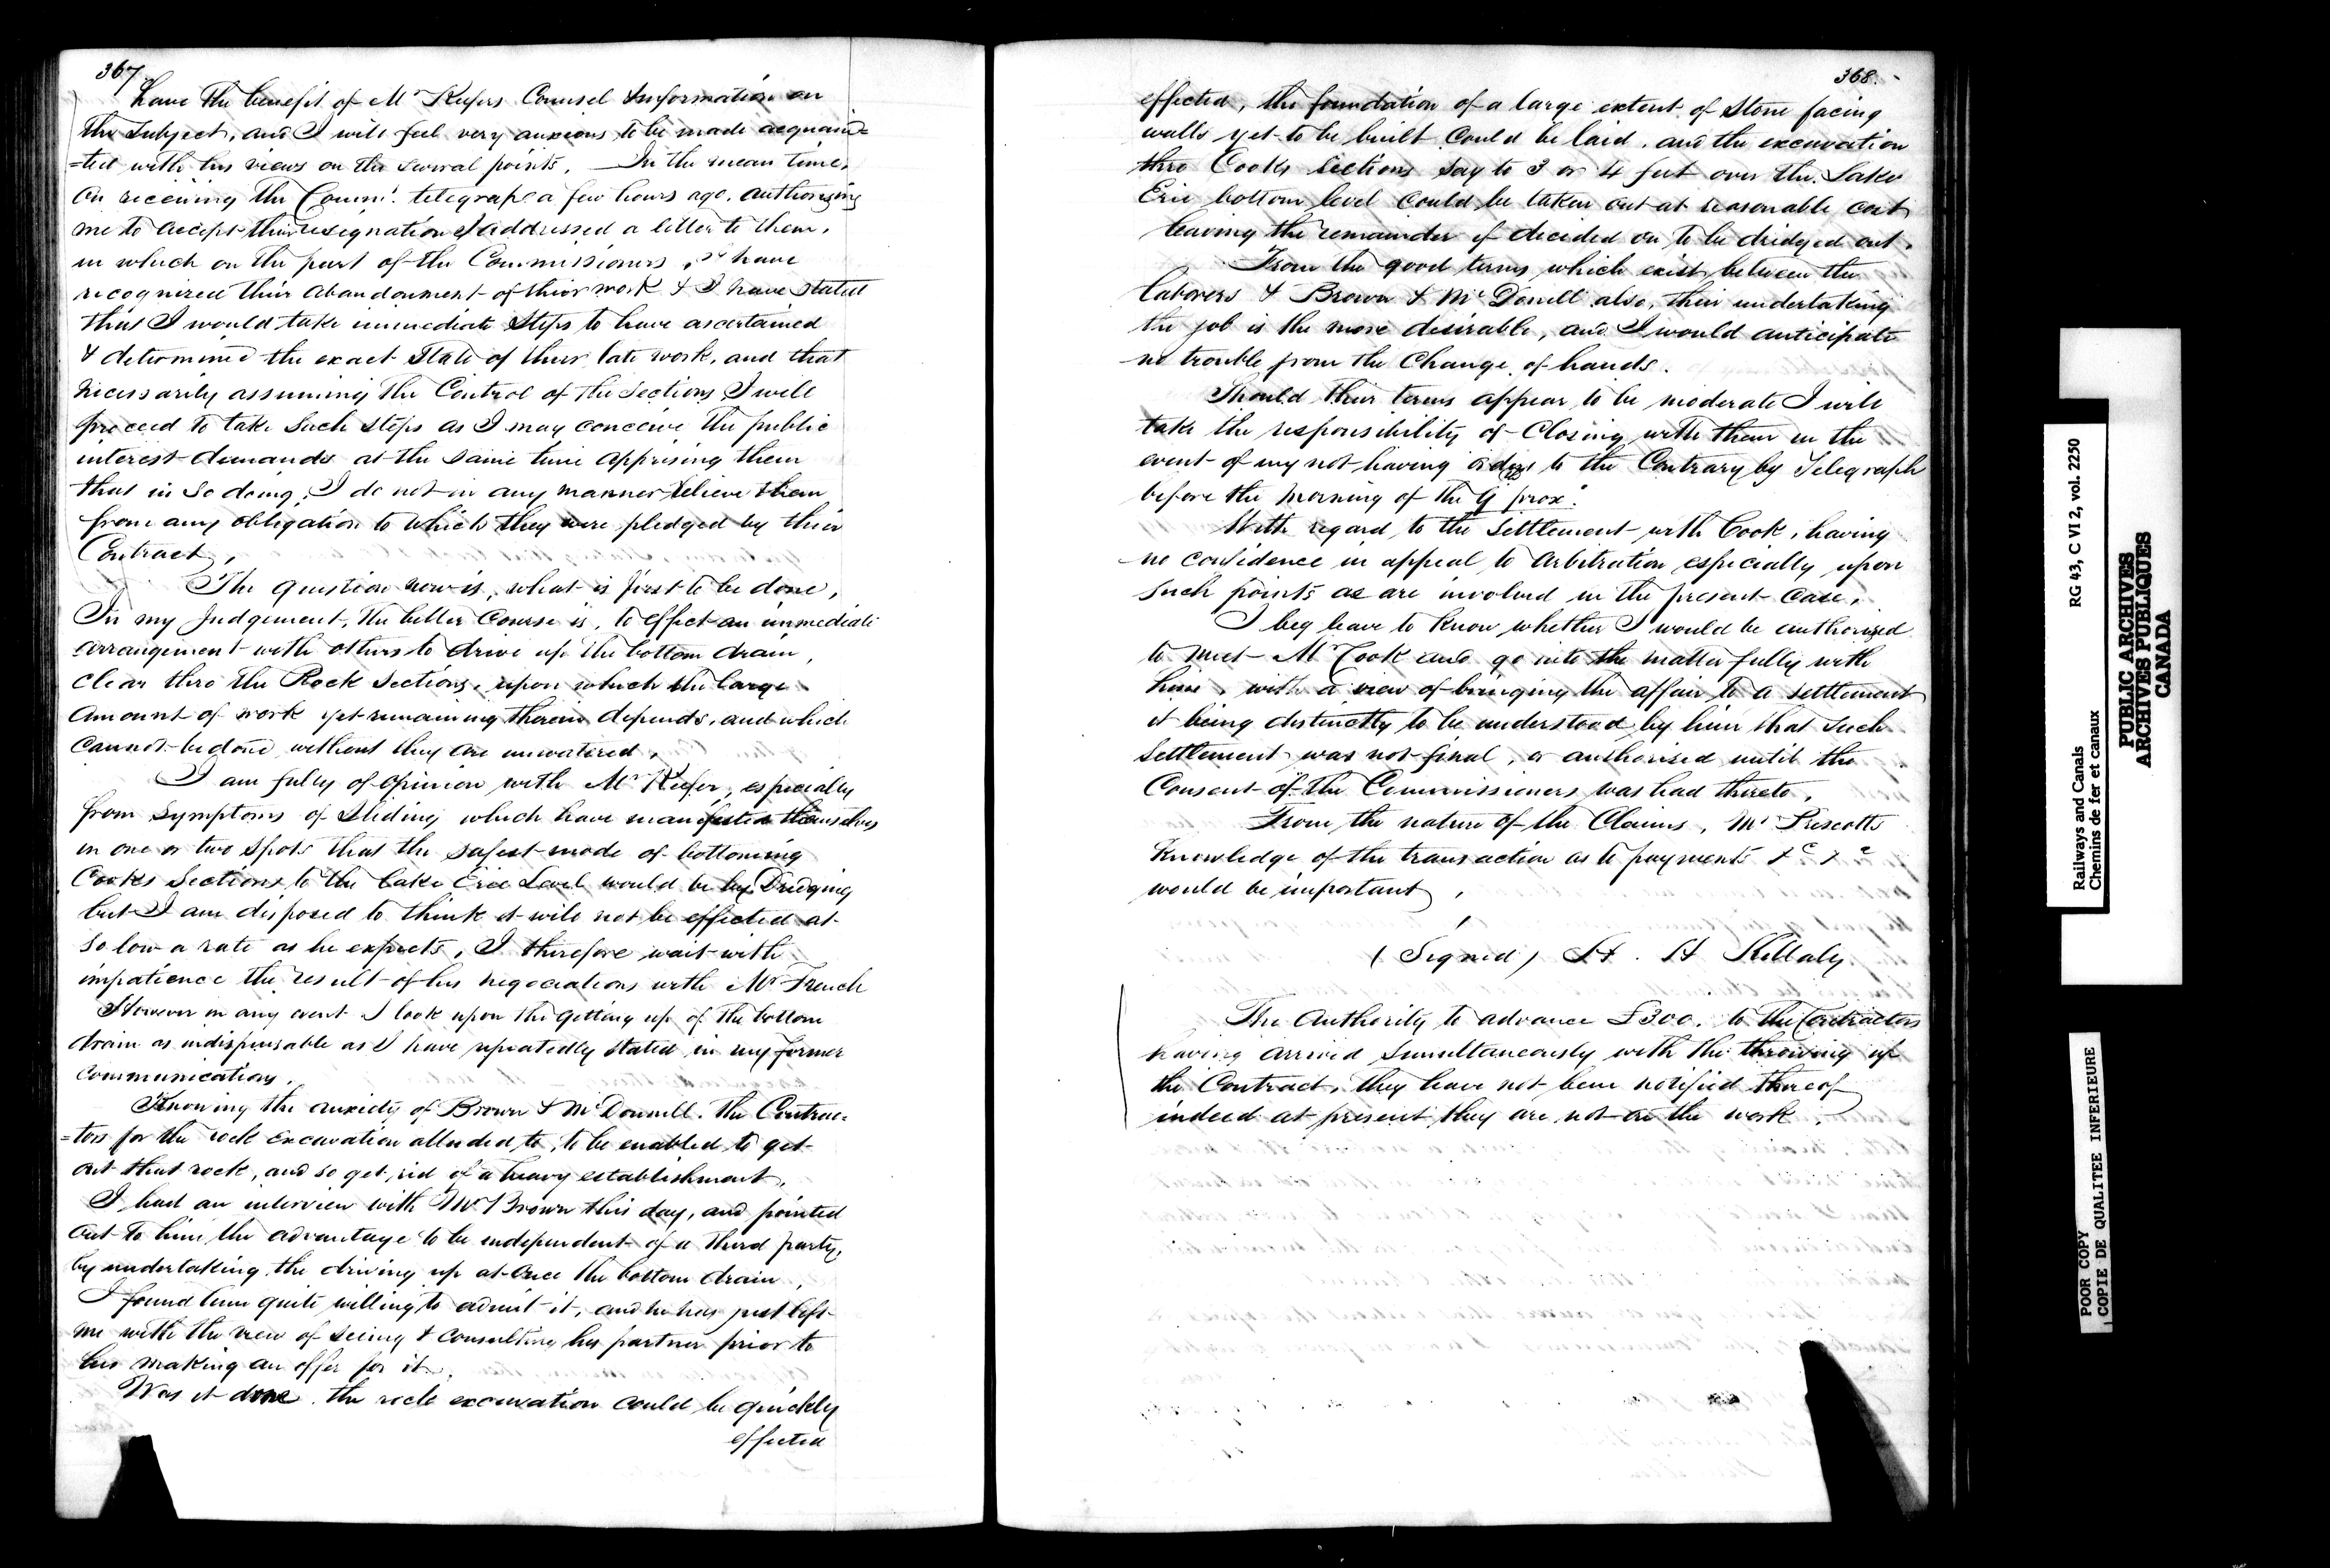 367
have the benefit of Mr Keefers Counsel & information on
the subject, and I will feel very anxious to be made acquain=
=ted with his views on the several points. — In the mean time,
on receiving the Commrs. telegraph a few hours ago, authorizing
me to accept their resignation I addressed a letter to them,
in which on the part of the Commissioners, I have
recognized their abandonment of their work & I have stated
that I would take immediate steps to have ascertained
& determined the exact state of their late work, and that
necessarily assuming the Control of the Sections I will
proceed to take such steps as I may conceive the public
interest demands at the same time apprising them
that in so doing, I do not in any manner relieve them
from any obligation to which they were pledged by their
Contract,
The question now is, what is first to be done,
In my Judgement, the better course is, to effect an immediate
arrangement with others to drive up the bottom drain,
clear thro the Rock Sections, upon which the large
amount of work yet remaining therein depends, and which
cannot be done without they are unwatered,
I am fully of opinion with Mr Keefer, especially
from symptoms of sliding which have manifested themselves
in one or two spots that the safest mode of bottoming
Cooks Sections to the Lake Erie Level would be by Dredging
but I am disposed to think it will not be effected at
so low a rate as he expects, I therefore wait with
impatience the result of his negociations with Mr French
However in any event I look upon the getting up of the bottom
drain as indispensable as I have repeatedly stated in my former
communications.
Knowing the anxiety of Brown & McDonnell. the Contrac=
=tors for the rock excavation alluded to, to be enabled to get
out that rock, and so get rid of a heavy establishment,
I had an interview with Mr Brown this day, and pointed
out to him the advantage to be independent of a third party,
by undertaking the driving up at once the bottom drain,
I found him quite willing to admit it, and he has just left
me with the view of seeing & consulting his partner prior to
his making an offer for it.
Was it done, the rock excavation could be quickly
effected
368.
effected, the foundation of a large extent of Stone facing
walls yet to be built could be laid, and the excavation
thro Cooks Sections say to 3 or 4 feet over the Lake
Erie bottom level could be taken out at reasonable cost
leaving the remainder if decided on to be dridged out.
From the good terms which exist between the
laborers & Brown & McDonell also, their undertaking
the job is the more desirable, and I would anticipate
no trouble from the Change of hands.
Should their terms appear to be moderate I will
take the responsibility of Closing with them in the
event of my not having orders to the Contrary by Telegraph
before the morning of the prox.
With regard to the Settlement with Cook, having
no confidence in appeal to Arbitration especially upon
such points as are involved in the present Case,
I beg leave to know whether I would be authorized
to meet Mr Cook and go into the matter fully with
him, with a view of bringing the affair to a settlement
it being distinctly to be understood by him that such
Settlement was not final, or authorised until the
Consent of the Commissioners was had thereto,
From the nature of the Claims, Mr Prescotts
Knowledge of the transaction as to payments &c &c
would be important,
(Signed) H. H Killaly
The Authority to advance £300. to the Contractors
having arrived simultaneously with the throwing up
the Contract, they have not been notified thereof
indeed at present they are not on the work.
Railways and Canals RG 43, C VI 2, vol. 2250
Chemins de fer et canaux
PUBLIC ARCHIVES
ARCHIVES PUBLIQUES
CANADA
POOR COPY
COPIE DE QUALITEE INFERIEURE